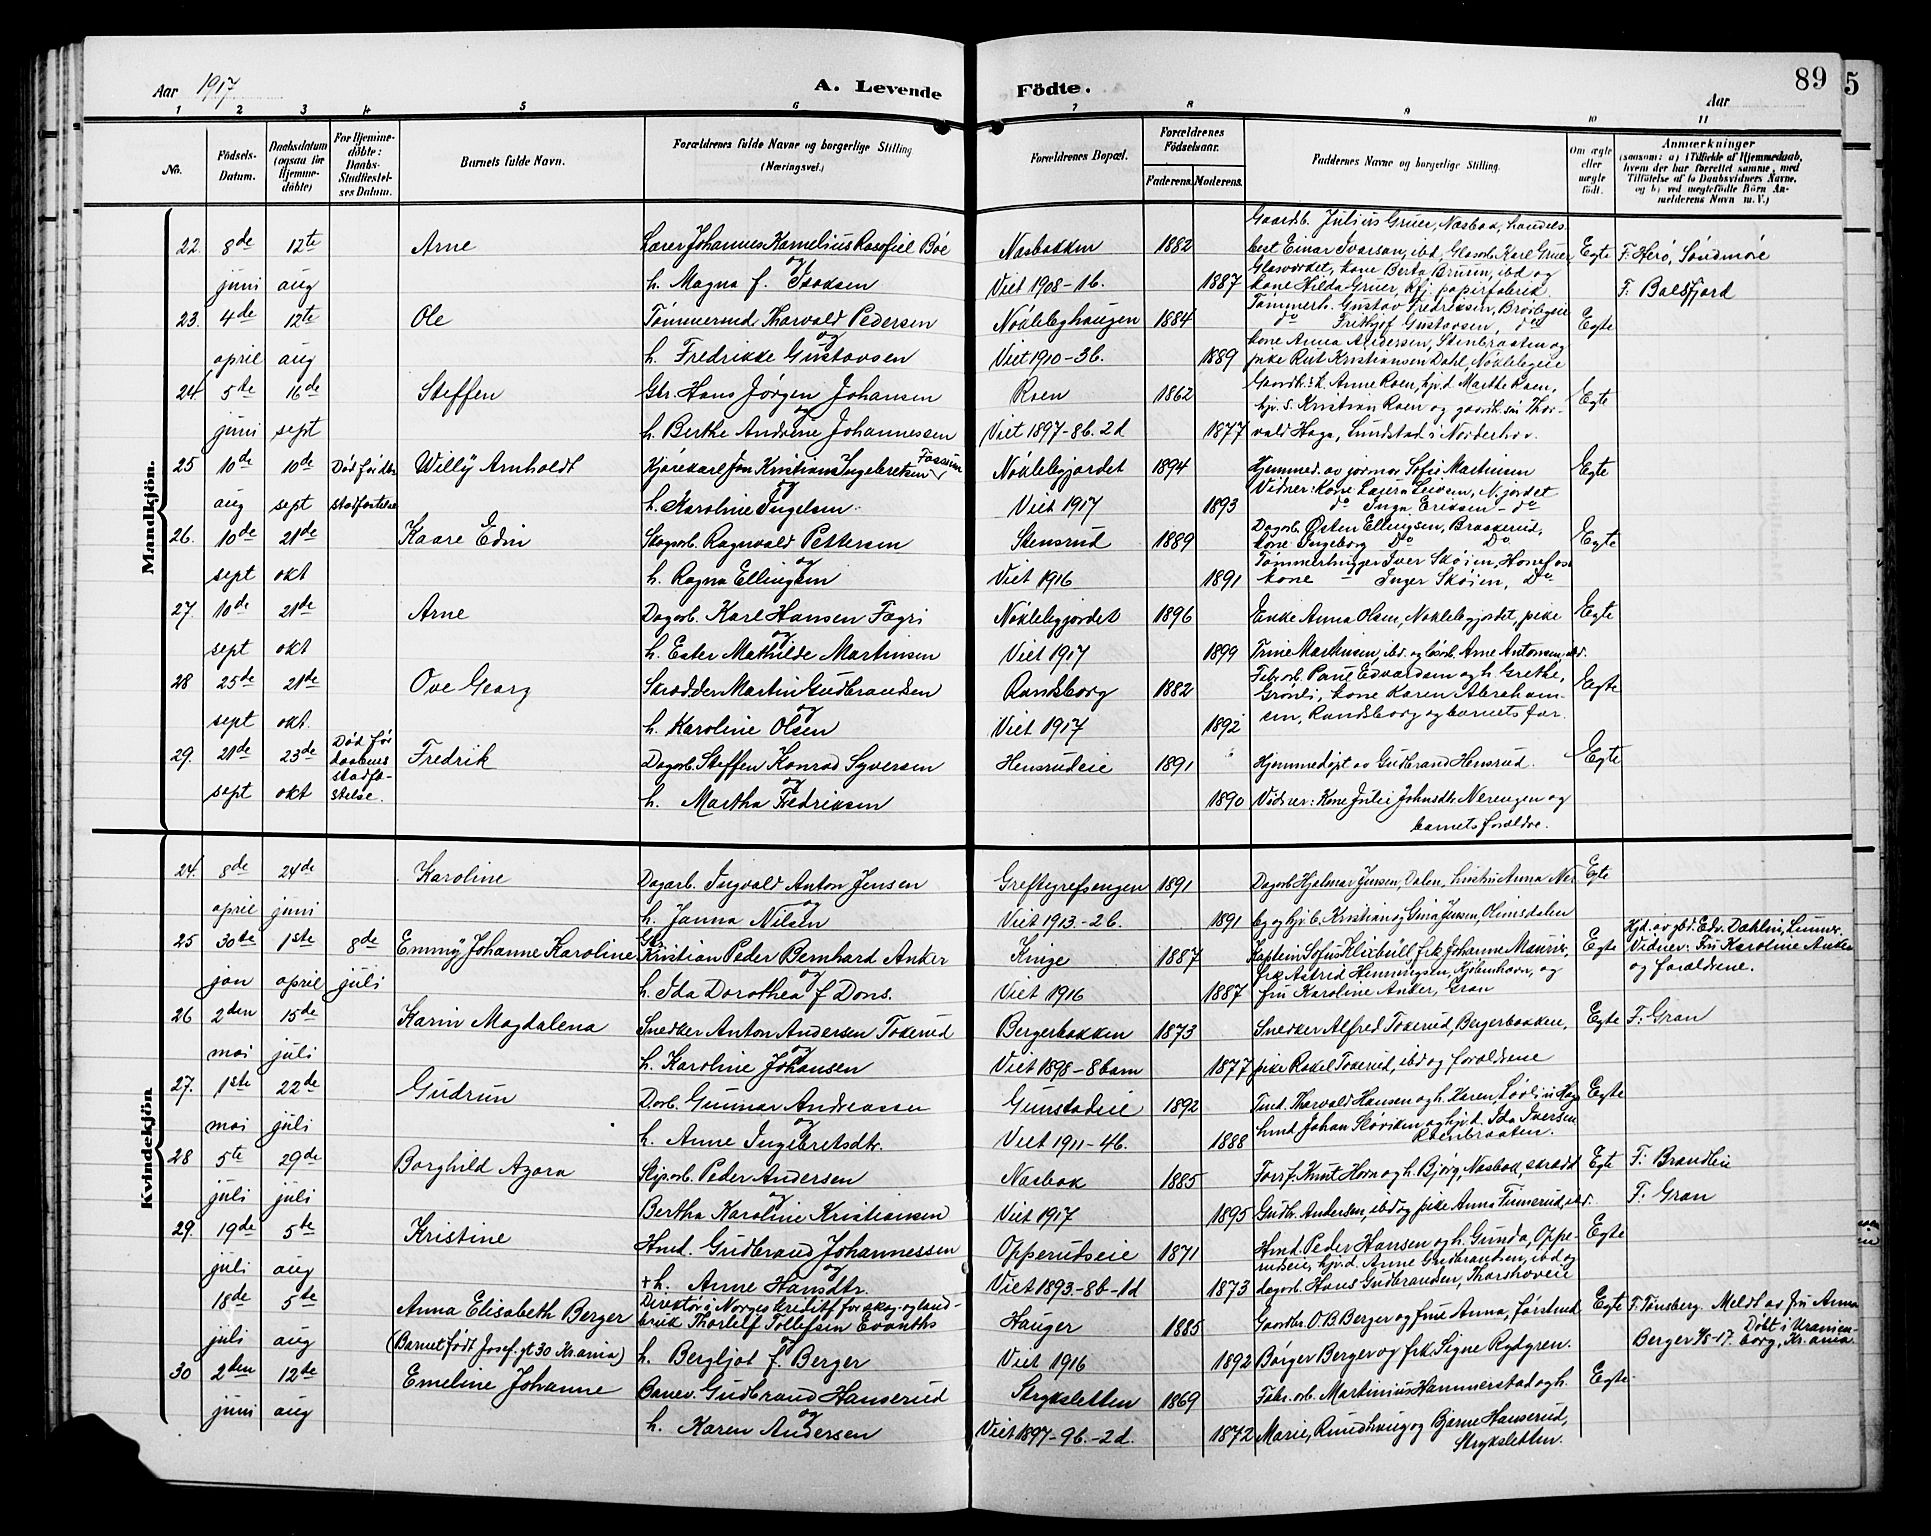 Aar 1917
A. Levende Födte.
Aar
89
5
1 2 3 4 5 6 7 8 9 10 11
No.
Födsels-Datum.
Daabsdatum (ogsaa for Hjemmedöbte)
For Hjemmedöbte: Daabs-Stadfæstelses Datum.
Barnets fulde Navn.
Forældrenes fulde Navne og borgerlige Stilling (Næringsvei.)
Forældrenes Bopæl.
Forældrenes Födselsaar.
Faderens. Moderens.
Faddernes Navne og borgerlige Stilling.
Om ægte eller uægte födt.
Anmærkninger (saasom: a) i Tilfælde af Hjemmedaab, hvem der har forrettet samme, med Tilföielse af to Daabsvidners Navne, og b) ved uægtefödte Börn Anmelderens Navn m. V.)
Mandkjön.
22. 8de juni 12te aug Arne
Lærer Johannes Kornelius Rasofiel Böe og
h. Magna f. Isaksen
Næsbakken Viet 1908-1b. 1882 1887
Gaardb. Julius Gruer, Næsbak, handels-
best Einar Ivarsen, ibd, Glasarb. Karl Gruer,
Glasværket, kone Berta Bruun, ibd og
kone Hilda Gruer, Kfj. papirfabrik
Egte F: Herö, Söndmöre
F: Balsfjord
23. 4de april 12te aug Ole
Tømmermd. Thorvald Pedersen og
h. Fredrikke Gustavsen
Nökleberghaugen Viet 1910-3b. 1884 1889
Tømmerh. Gustav Fredriksen,
do Fritjof Gustavsen, do
kone Anna Andersen, Stenbraaten og
pike Rut Kristiansen Dahl, Nöklebyeie
Egte
24 5te juni 16de sept Steffen
Gbr. Hans Jørgen Johansen og
h. Berthe Andrine Johannessen
Roen Viet 1897-8b. 2d 1862 1877
Gaardb.sk. Anne Roen, hjv.d. Marthe Roen,
hjv.s. Kristian Roen og gaardb. sön Thor-
vald Haga, Lundstad i Norderhov.
Egte
25 10de aug 10de sept Död för den stadfæstelse Willy Arnholdt
Kjørekarl Jon Kristian Ingebretsen Fossum og
h. Karoline Ingelsen.
Nöklebygjordet Viet 1917 1894 1893
Hjemmed. av jormor Sofie Martinsen
Vidner: Kone Laura Sivesen, N.jordet
do Inga Eriksen - do
Egte
26. 10de sept 21de okt Kaare Edin
Skogarb. Ragnvald Pettersen og
h. Ragna Ellingsen
Stensrud Viet 1916 1889 1891
Dagarb. Østen Ellingsen, Braakerud,
kone Ingeborg Do Do
Tømmerhugger Iver Skøien, Hønefos
kone - Inger Skøien, Do
Egte
27. 10de sept 21de okt Arne
Dagarb. Karl Hansen Fagri og
h. Ester Mathilde Martinsen
Nöklebygjordet Viet 1917 1896 1899
Enke Anna Olsen, Nöklebygjordet, pike
Trine Martinsen, ibd. og lösarb. Arne Antonsen, ibd.
Egte
28 25de sept 21de okt. Ove Georg
Skrædder Martin Gudbrandsen og
h. Karoline Olsen
Randsborg Viet 1917 1882 1892
Fabr.arb. Paul Edvardsen og h. Grethe,
Grönli, kone Karen Abraham-
sen, Randsborg og barnets far.
Egte
29. 21de sept 23de okt Död för daabens stadfæstelse. Fredrik
Dagarb. Steffen Konrad Syversen og
h. Martha Fredriksen
Hensrudeie 1891 1890
Hjemmedöpt av Gudbrand Hensrud.
Vidner: Kone Julie Johnsdtr. Nerengen og
barnets forældre.
Egte
Kvindekjön
24. 8de april 24de juni Karoline
Dagarb. Ingvald Anton Jensen og
h. Janna Nilsen
Greftegrefsengen Viet 1913-2b. 1891 1891
Dagarb Hjalmar Jensen, Dalen, hustru Anna Ner-
by og hjv.b. Kristian og Gina Jensen, Olimsdalen
Egte
25 30te jan 1ste april 8de juli Emmy Johanne Karoline
Gbr. Kristian Peder Bernhard Anker og
h. Ida Dorothea f Dons.
Kinge Viet 1916 1887 1887
Kaptein Sofus Klixbüll, frk Johanne Maurier,
frk Astrid Henningsen, Kjöbenhavn, og
fru Karoline Anker, Gran
Egte Hjd. av gbd. Edv. Dahlin, Lunner.
Vidner: Fru Karoline Anker
og forældrene.
26 2den mai 15de juli Karin Magdalena
Snedker Anton Andersen Tokerud og
h. Karoline Johansen
Bergerbakken Viet 1898-8 barn 1873 1877
Snekker Alfred Tokerud, Bergerbakken,
pike Rakel Tokerud, ibd og forældrene
Egte F: Gran
27. 1ste mai 22de juli Gudrun
Darb. Gunnar Andreassen og
h. Anne Ingebretsdtr.
Gunstadeie Viet 1911-4b. 1892 1888
Tmd. Thorvald Hansen og h. Karen, Lövli i Hog
hmd. Johan Slöviken og hjv.d. Ida Iversen
Roenbraaten.
Egte
28 5te juli 29de juli Borghild Azora
Slip.arb. Peder Andersen og
Bertha Karoline Kristiansen
Næsbak Viet 1917 1885 1895
Forrf. Knut Horn og h. Bjørg, Næsbak, skrædd
Gudbr. Andersen, ibd og pike Anna Finnerud, ibd.
Egte F: Brandbu
F: Gran
29. 19de juli 5te aug Kristine
Hmd. Gudbrand Johannessen og
+h. Anne Hansdtr.
Opperudseie Viet 1893.-8b-1d 1871 1873
Hmd. Peder Hansen og h. Gunda, Oppe-
rudseie, hjv.d. Anne Gudbrandsen, ibd og
dagarb. Hans Gudbrandsen, Thorshoveie
Egte
18de juli 5te aug Anna Elisabeth Berger
(Barnet födt Josef. gt 30 Kr.ania)
Direktör i Norges kreditf for skog- og land-
bruk Thorleif Tollefsen Evanths og
h. Bergljot f. Berger
Hauger Viet 1916 1885 1892
Gaardbr. O. B. Berger og frue Anna, forstmd
Börger Berger og frk. Signe Rydgren.
Egte F. Tønsberg. Meldt av fru Anna
Berger 4/8-17. Döbt i Uranien-
borg, Kr.ania
30 2den juni 12te aug Emeline Johanne
Banev. Gudbrand Hanserud og
h. Karen Andersen
Stryksletten Viet 1897-9b.-2d. 1869 1872
Fabr.arb. Martinius Hammerstad og h.
Marie, Rundhaug og Bjarne Hanserud,
Stryksletten.
Egte